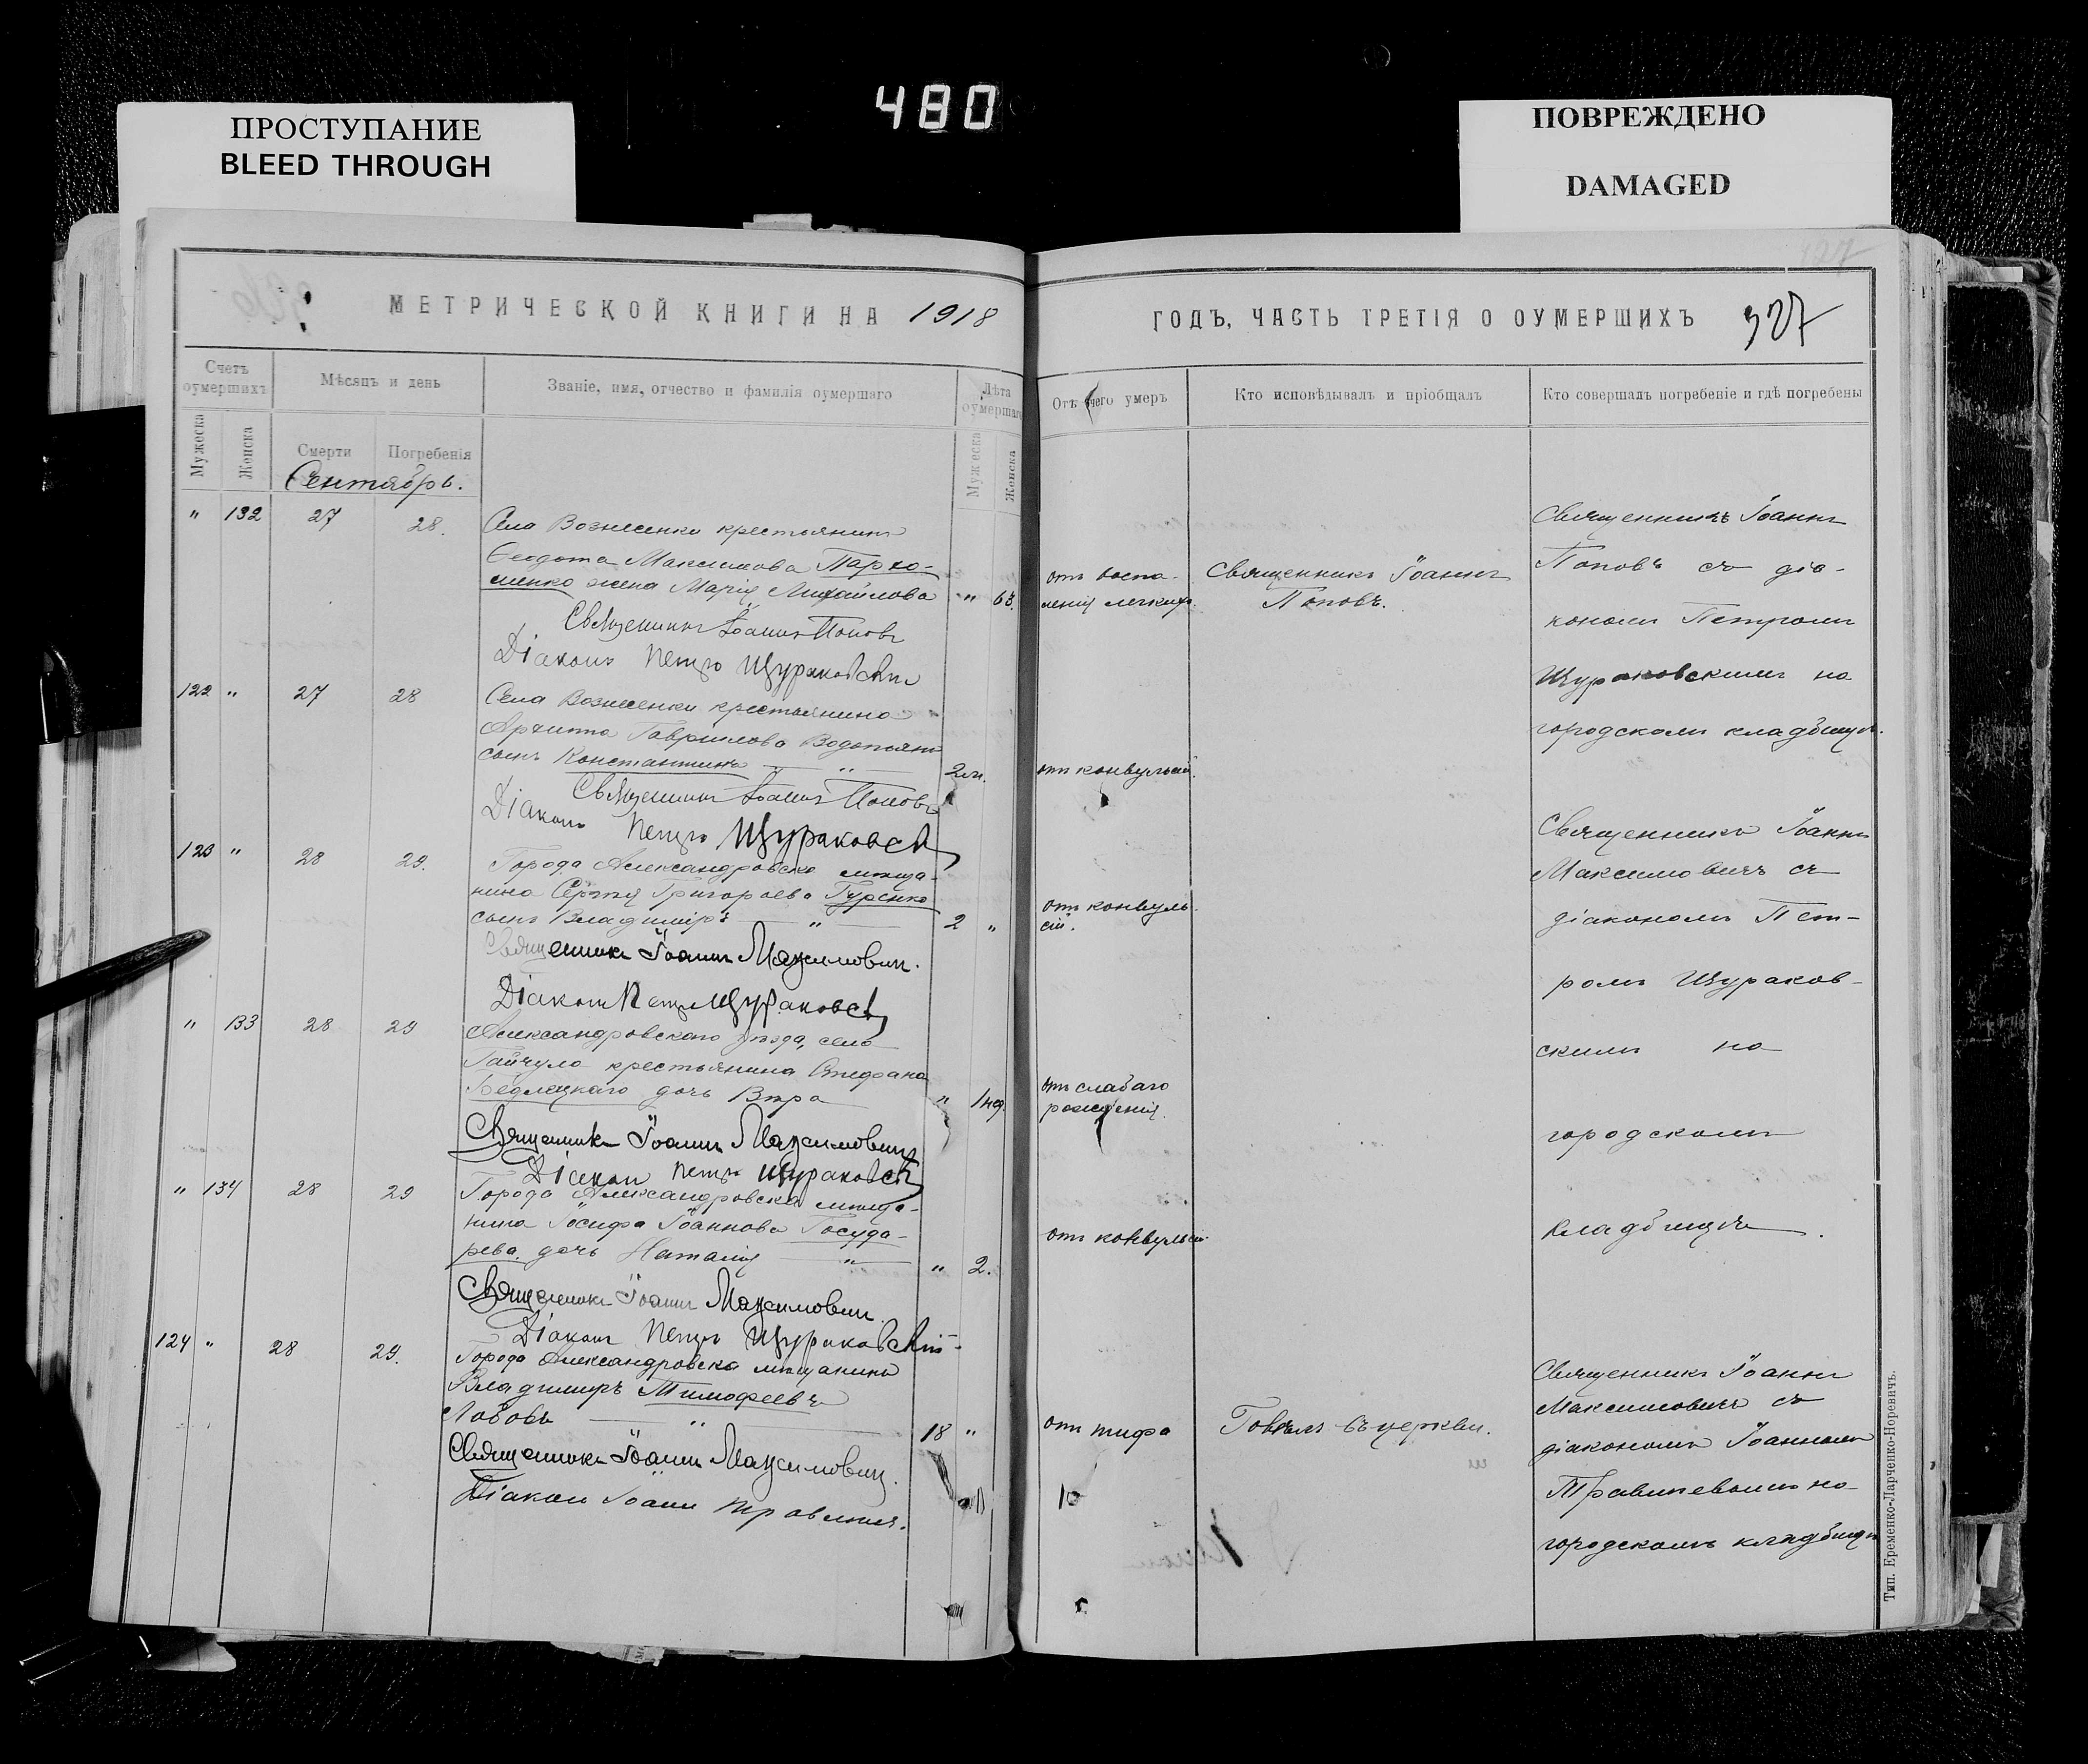 480
ПРОСТУПАНИЕ
BLEED THROUGH
ПОВРЕЖДЕНО
DAMAGED
МЕТРИЧЕСКОЙ КНИГИ НА 1918
Счетъ оумершихъ
Мѣсяцъ и день
Званіе, имя, отчество и фамилія оумершаго
Лѣта оумершаго
Мужеска
Женска
Смерти
Погребенія
Мужеска
Женска
Сентябрь.
" 132 27 28. Села Вознесенки крестьянина
Ѳеодота Максимова Пархо-
менко жена Марія Михайлова " 63.
Священникъ Іоаннъ Поповъ
Діаконъ Петръ Щураковскій
122 " 27 28 Села Вознесенки крестьянина
Архиппа Гаврилова Водопьянъ
сынъ Константинъ — " — 2 м.
Священникъ Іоаннъ Поповъ
Діаконъ Петръ Щураковскій
123 " 28 29. Города Александровска мѣща-
нина Сергѣя Григорьева Гуренко
сынъ Владиміръ — " — 2 "
Священникъ Іоаннъ Максимовичъ.
Діаконъ Петръ Щураковскій
" 133 28 29 Александровскаго уѣзда, села
Гайчула крестьянина Стефана
Бедлецкаго дочь Вѣра " 1 нед.
Священникъ Іоаннъ Максимовичъ
Діаконъ Петръ Щураковскій
" 134 28 29 Города Александровска мѣща-
нина Іосифа Іоаннова Госуда-
рева дочь Наталія — " — " 2.
Священникъ Іоаннъ Максимовичъ.
Діаконъ Петръ Щураковскій
124 " 28 29. Города Александровска мѣщанинъ
Владиміръ Тимофеевъ
— " — 18 "
Священникъ Іоаннъ Максимовичъ.
Діаконъ Іоаннъ
ГОДЪ, ЧАСТЬ ТРЕТІЯ О ОУМЕРШИХЪ 327
Отъ чего умеръ
Кто исповѣдывалъ и пріобщалъ
Кто совершалъ погребеніе и гдѣ погребены
отъ воспа-
ленія легкихъ.
Священникъ Іоаннъ
Поповъ.
Священникъ Іоаннъ
Поповъ съ діа-
кономъ Петромъ
Щураковскимъ на
городскомъ кладбищѣ.
отъ конвульсій.
Священникъ Іоаннъ
Максимовичъ съ
діакономъ Пет-
ромъ Щураков-
скимъ на
городскомъ
кладбищѣ.
отъ конвуль-
сій.
отъ слабаго
рожденія.
отъ конвульсій.
отъ тифа
Говѣлъ въ церкви.
Священникъ Іоаннъ
Максимовичъ съ
діакономъ Іоанномъ
на
городскомъ кладбищѣ
Тип. Еременко-Ларченко-Норевичъ.